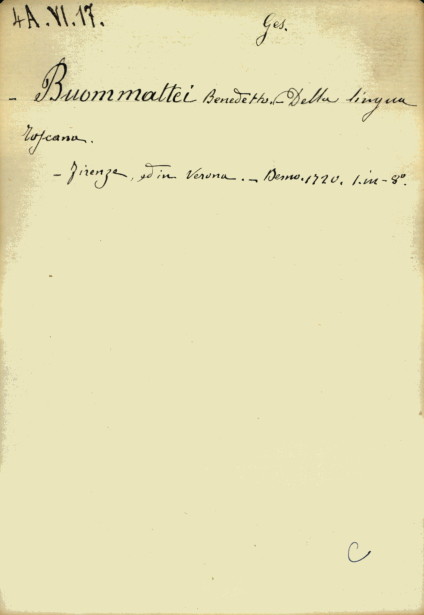 4A.VI.17.
Ges.
- Buommattei Benedetto. - Della lingua
Toscana.
- Firenze, ed in Verona. - Berno. 1720. 1. in-8º.
C